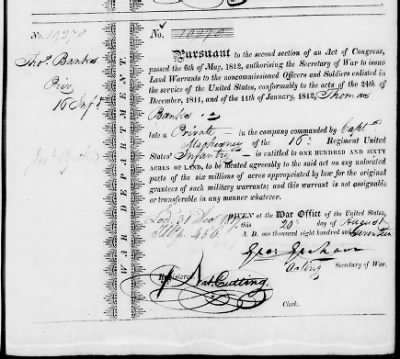 No. 10278
Thos. Bankes
Priv
16 Inft
WAR DEPARTMENT.
No. 10278
Pursuant to the second section of an Act of Congress,
passed the 6th of May, 1812, authorising the Secretary of War to issue
Land Warrants to the noncommissioned Officers and Soldiers enlisted
in the service of the United States, conformably to the acts of the 24th of
December, 1811, and of the 11th of January, 1812, Thomas
Bankes
late a Private in the company commanded by Capt
of the 16th Regiment United
States' Infantry is entitled to ONE HUNDRED AND SIXTY
ACRES OF LAND, to be located agreeably to the said act on any unlocated
parts of the six millions of acres appropriated by law for the original
grantees of such military warrants; and this warrant is not assignable
or transferable in any manner whatever.
GIVEN at the War Office of the United States,
this 20th day of August
A. D. one thousand eight hundred and Seventeen
Geo: Graham
Acting Secretary of War.
Registered
Nat. Cutting
Clerk.